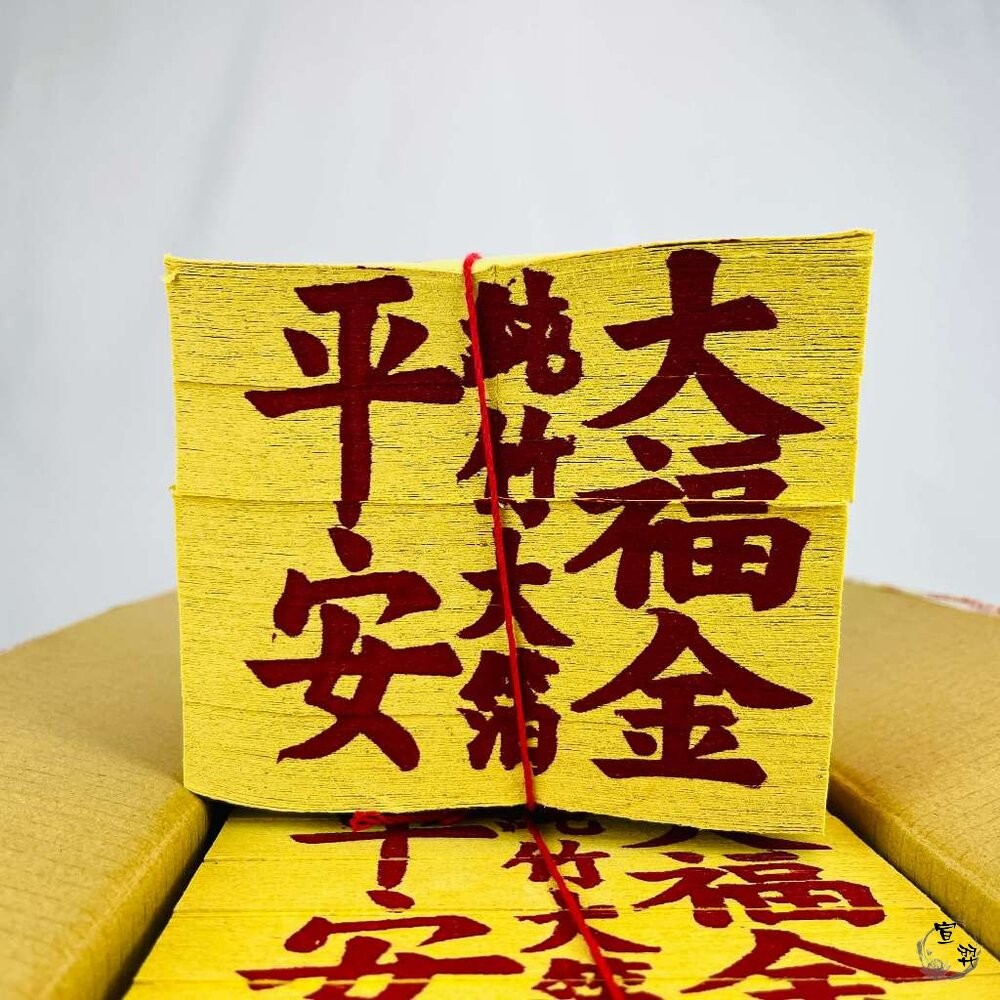 大福金
純竹大箔
平安
大福金
純竹大箔
平安
宣羿